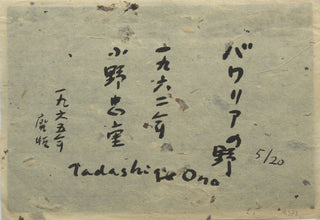 バワリアの野
5/20
一九六二年
小野忠重
Tadashige Ono
一九六五年